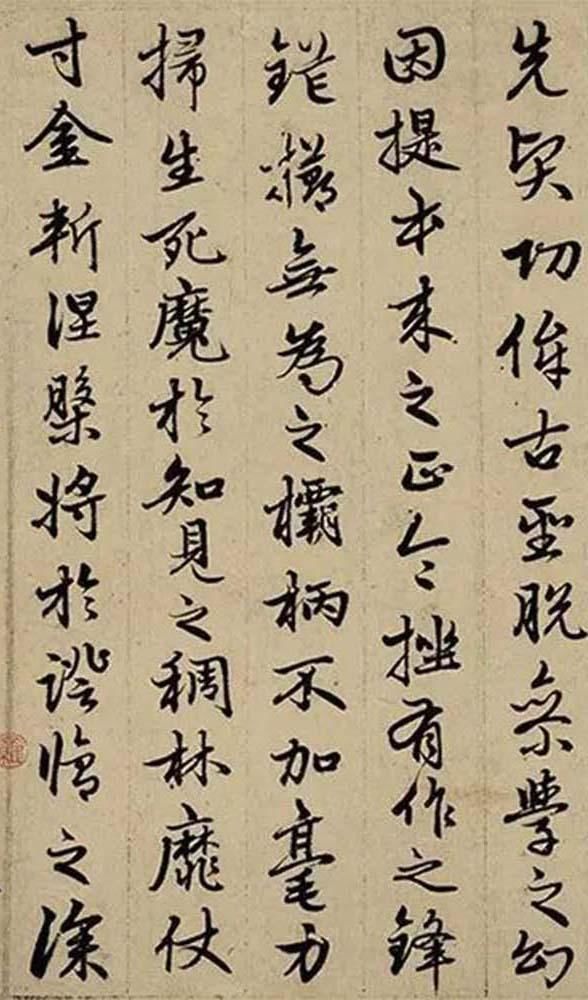 先功侔古聖脫參學之幻
因提本来之正令挫有作之鋒
鋩無為之欛柄不加毫力
掃生死魔於知見之稠林靡仗
寸金斬涅槃將於證悟之深